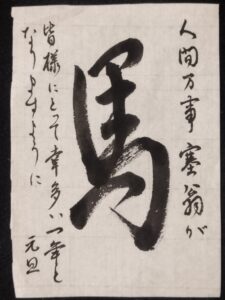 人間万事塞翁が
馬
皆様にとって幸多い一年と
なりますように
元旦